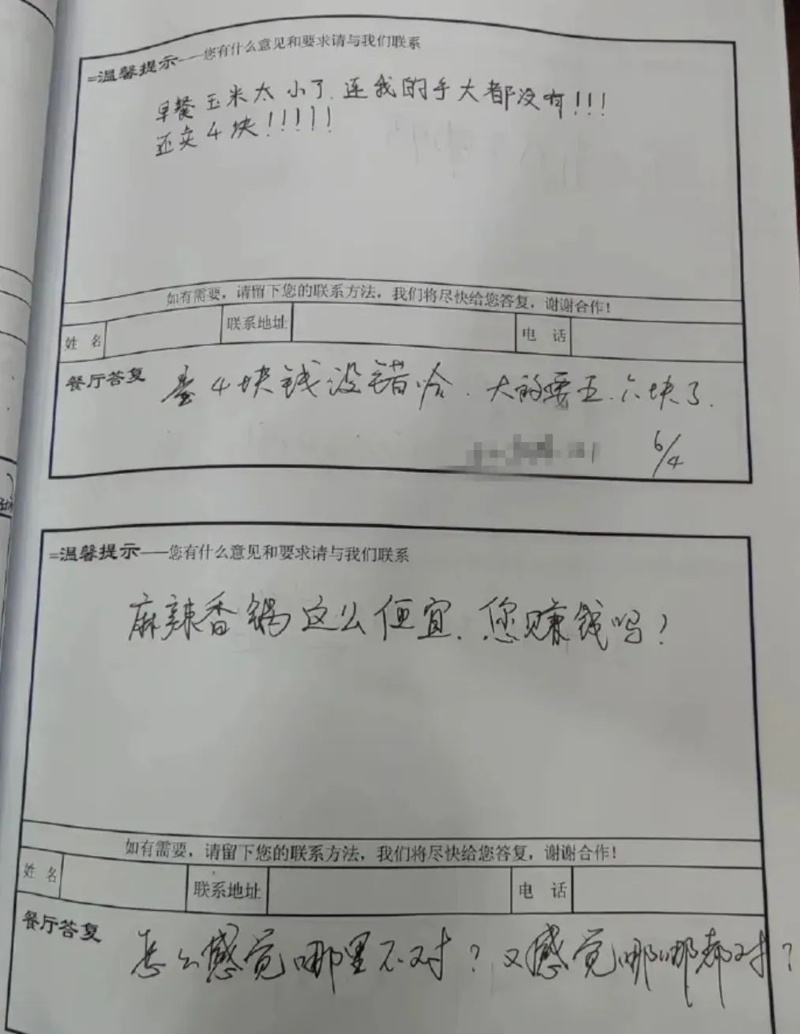 =温馨提示——您有什么意见和要求请与我们联系
早餐玉米太小了.连我的手大都没有!!!
还卖4块!!!!!
如有需要，请留下您的联系方法，我们将尽快给您答复，谢谢合作！
姓 名 联系地址 电 话
餐厅答复 4块钱没错哈.大的要五.六块了.
6/4
=温馨提示——您有什么意见和要求请与我们联系
麻辣香锅这么便宜.您赚钱吗?
如有需要，请留下您的联系方法，我们将尽快给您答复，谢谢合作！
姓 名 联系地址 电 话
餐厅答复 怎么感觉哪里不对?又感觉哪哪都对?